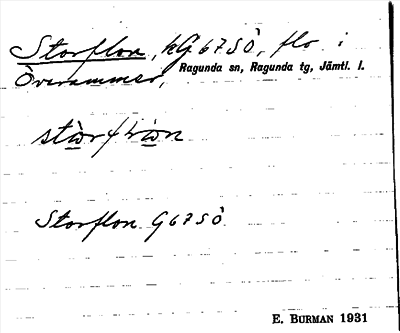 Storflon, kG67SÖ, flo i
Överammer, Ragunda sn, Ragunda tg, Jämtl. l.
Storflon G67SÖ
E. BURMAN 1931